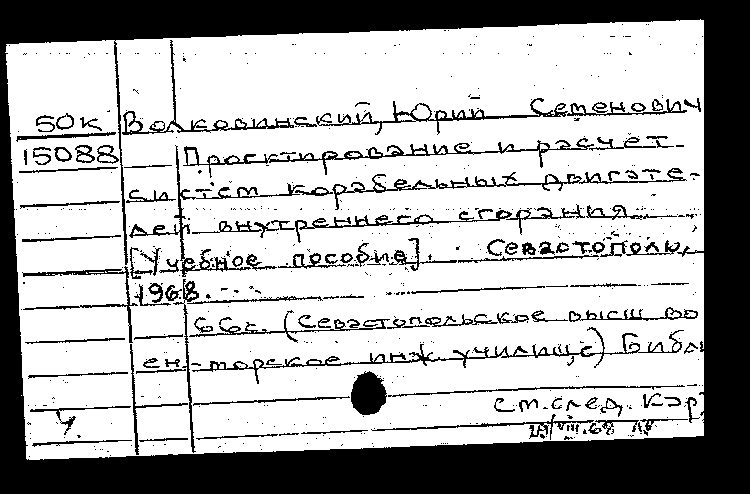 50К Волковинский, Юрий Семенович
15088 Проектирование и расчет
систем корабельных двигате-
лей внутреннего сгорания
[Учебное пособие]. Севастополь,
1968.
66с. (Севастопольское высш. во
ен.-морское инж. училище) Библи
см. след. кар
У. /VIII.68